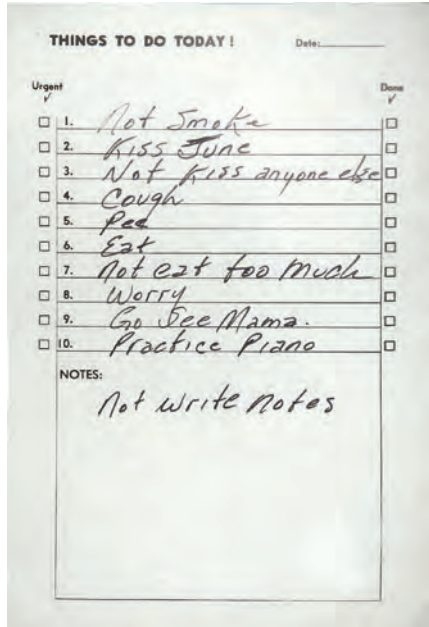 THINGS TO DO TODAY! Date:
Urgent Done
✓ ✓
1. Not Smoke
2. Kiss June
3. Not Kiss anyone else
4. Cough
5. Pee
6. Eat
7. Not eat too much
8. Worry
9. Go See Mama.
10. Practice Piano
NOTES:
Not write notes